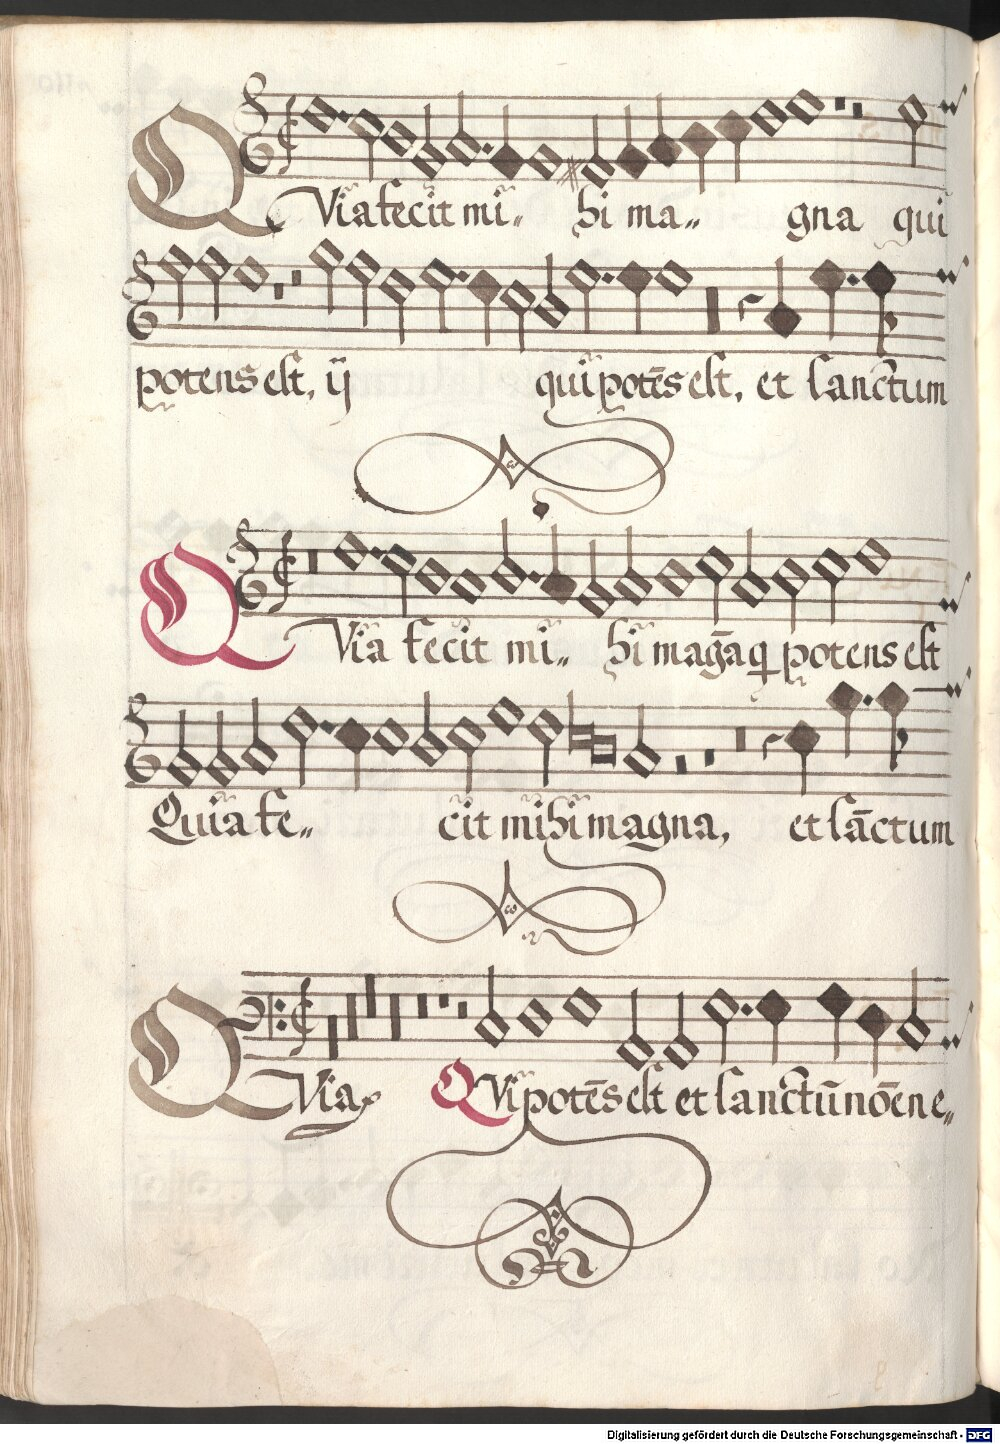 QVia fecit mi„ hi ma„ gna qui
potens est, ij qui potēs est, et sanctum
QVia fecit mi„ hi magāq potens est
Quia fe„ cit mihi magna, et sāctum
QVia QVi potēs est et sanctū nōen e„
Digitalisierung gefördert durch die Deutsche Forschungsgemeinschaft - DFG